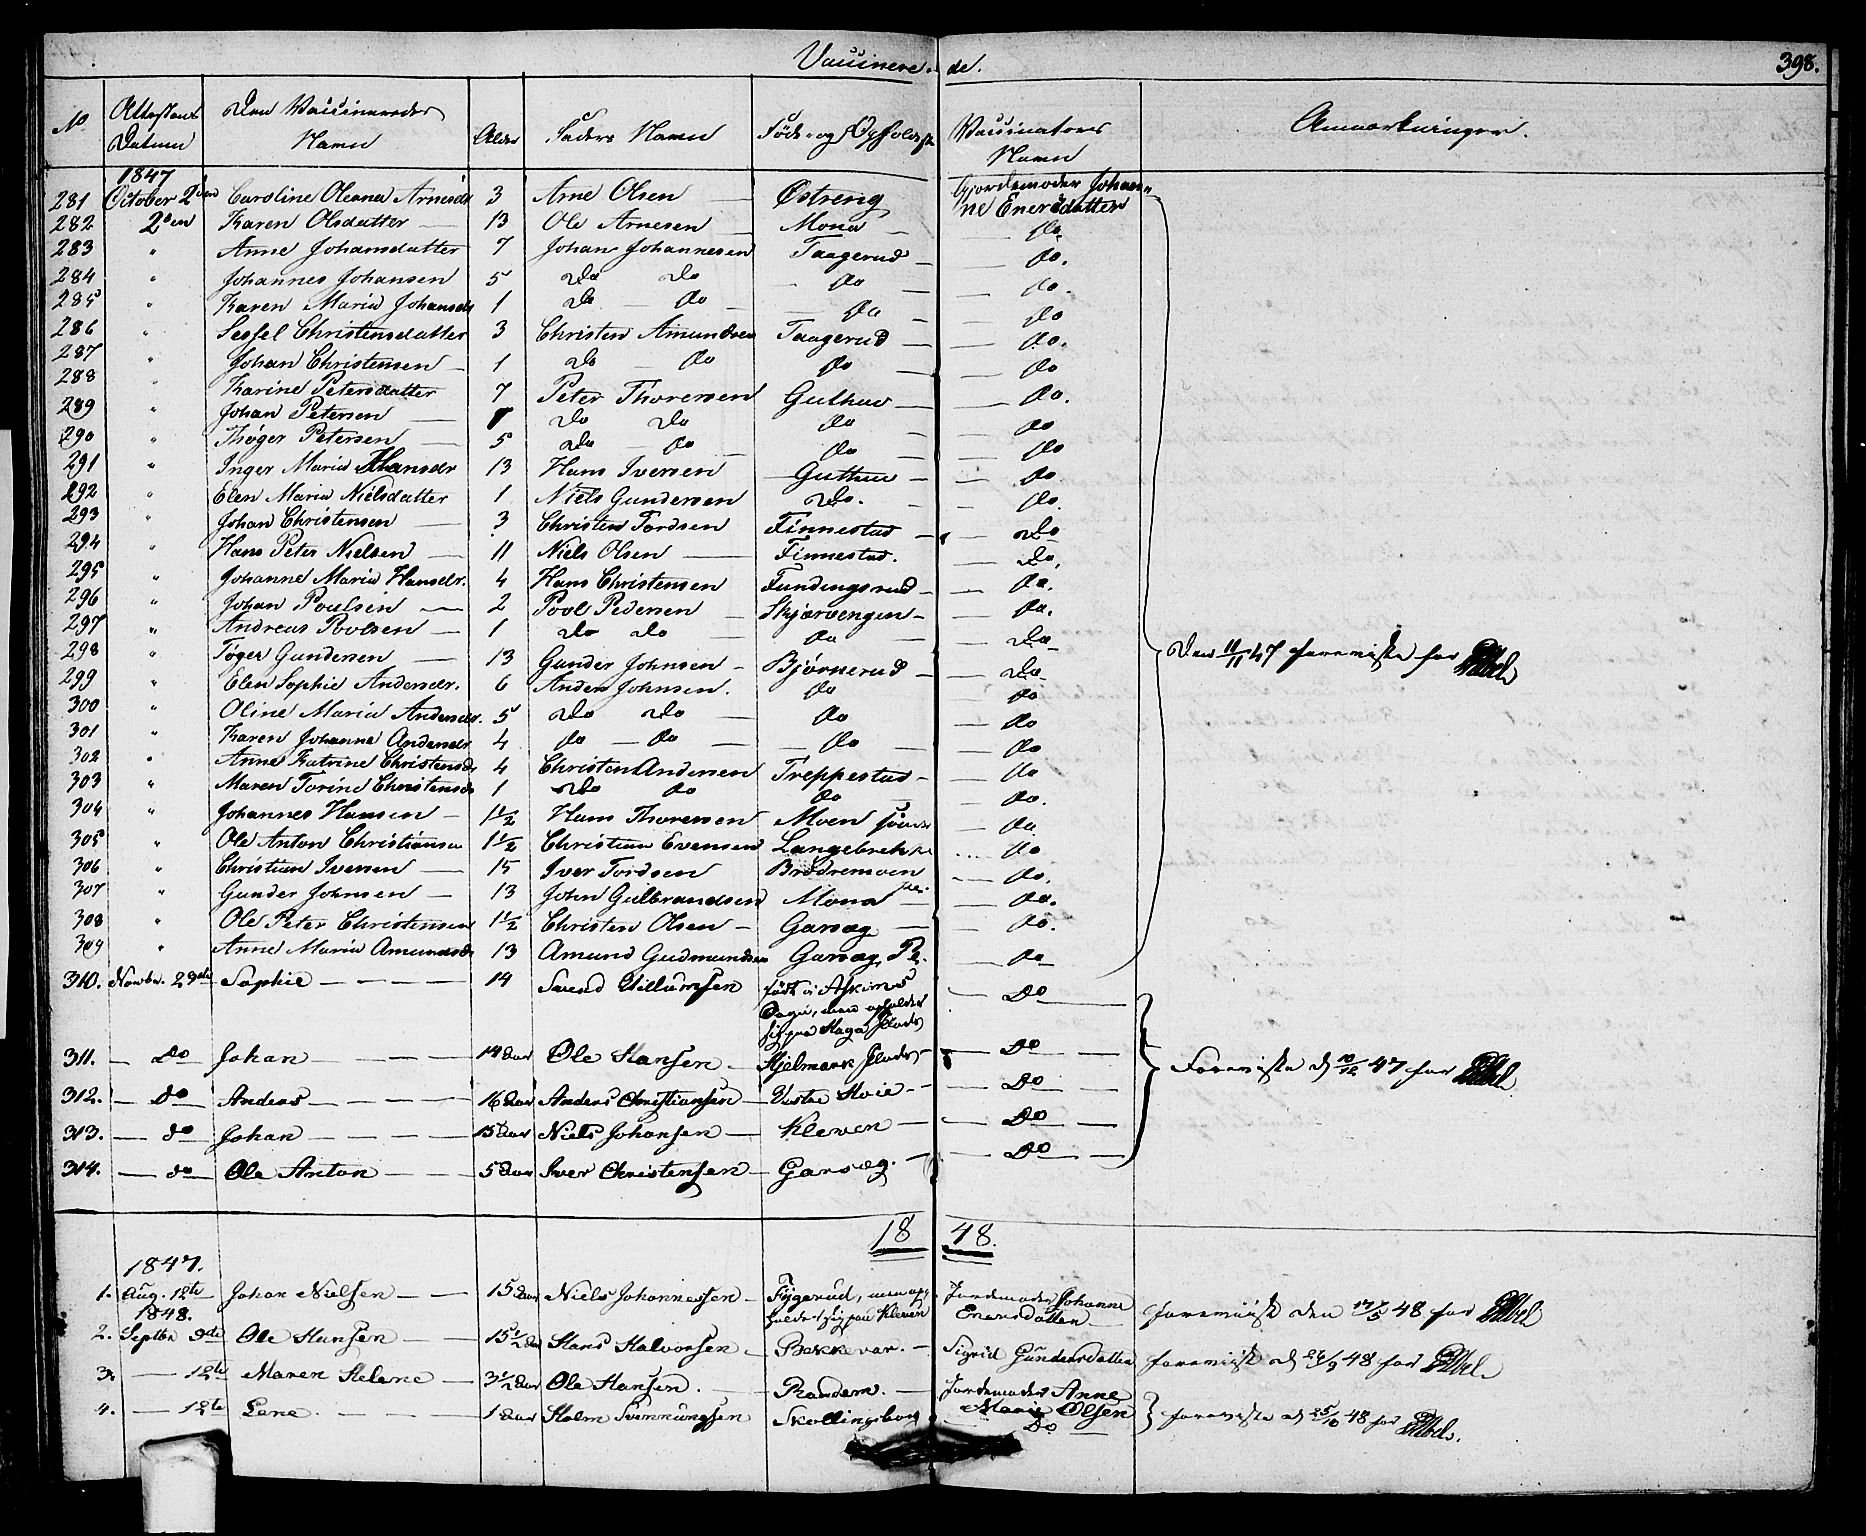 Vaccinere- de. 398.
No Attestens Datum Den Vaccineredes Navn Alder Faders Navn Føde- og Opholdsst Vaccinators Navn Anmærkninger.
1847
281 October 2den Caroline Oleana Arnesdr 3 Arne Olsen — Østreng Gjordemoder Johan-
ne Enersdatter
282 2den Karen Olsdatter — 13 Ole Arnesen — Mona — do.
283 " Anne Johansdatter 7 Johan Johannesen Taagerud — do.
284 " Johannes Johansen 5 Do Do — do — do.
285 " Karen Maria Johansdr 1 Do — do — do — do
286 " Sessel Christensdatter 3 Christen Amundsen Taagerud — do.
287 " Johan Christensen — 1 do — do do — do
288 " Karine Petersdatter 7 Peter Thoresen Guthus — do.
289 " Johan Petersen — Do Do do — do
290 " Thøger Petersen — 5 Do — do — do — do
291 " Inger Maria Hansdr 13 Hans Iversen Guthus — do
292 " Elen Maria Nielsdatter 1 Niels Gundersen Do. — do.
293 " Johan Christensen — 3 Christen Tordsen Finnestad — Do
294 " Hans Peter Nielsen — 11 Niels Olsen — Finnestad. — Do.
295 " Johanne Maria Hansdr. 4 Hans Christensen Fundingsrud — do.
296 " Johan Poulsen — 2 Povl Pedersen — Skjærvengen — do.
297 " Andreas Povlsen — 1 Do Do — do — Do
298 " Tøger Gundersen — 13 Gunder Johnsen — Bjørnerud — Do Den 10/11 47 fremviste for Abel
299 " Elen Sophie Andersdr. 6 Anders Johnsen. do — do
300 " Oline Maria Andersdr. 5 Do Do — do — do
301 " Karen Johanne Andersdr 4 do — do — do — do
302 " Anne Katrine Christensdr 4 Christen Andersen Treppestad — do
303 " Maren Torine Christensdr 1 Do do do — do.
304 " Johannes Hansen — 1½ Hans Thoresen Moen — do.
305 " Ole Anton Christiansen 1½ Christian Evensen Langebrekke do.
306 " Christian Iversen — 15 Iver Tordsen Brødremoen — do.
307 " Gunder Johnsen — 13 John Gulbrandsen Mona — do.
308 " Ole Peter Christensen 1½ Christen Olsen — Garsæg — do.
309 " Anne Maria Amundsdr 13 Amund Gudmundsen Garsæg Pl. — do
310. Novbr. 29de Sophie — 14 Svend født i Askims — Do
Sogn, men opholder
sig paa Haga Plads
311. — Do Johan — 14 Aar Ole Hansen — Hjelmark Plads — Do — Fremviste d 10/12 47 for Abel
312. — do Anders — 16 Aar Anders Christiansen — Vestre Hoie — Do —
313. — do Johan — 15 Aar Niels Johansen — Kleven — Do —
314. — do Ole Anton — 5 Aar Iver Christensen — Garsæg. — Do —
18 48.
1847.
1. Aug. 12te Johan Nielsen — 15 Aar Niels Johannessen — Fygerud, men op-
holder sig paa Kleven Jordemoder Johanne
Enersdatter — fremvist den 17/5 48 for Abel
1848.
2. Septbr 9de Ole Hansen — 15½ Aar Hans Halvorsen — Bekkevar. — Sigrid Gundersdatter fremvist d 24/9 48 for Abel
3. — 12te Maren Helene — 3½ Aar Ole Hansen. — Randem. — Jordemoder Anne
Marie Olsen
4. — 12te Lene. — 1 Aar Holm Svennungsen Skollingsborg — Do — fremviste d 25/10 48 for Abel.